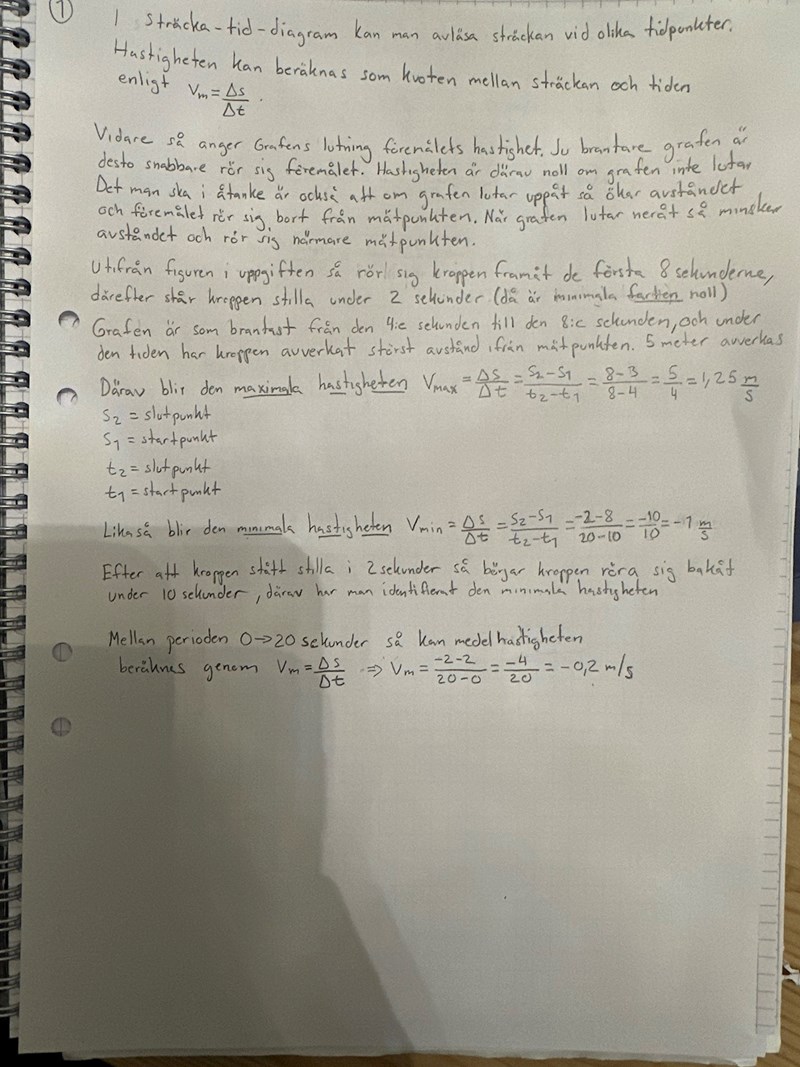 1
I sträcka-tid-diagram kan man avläsa sträckan vid olika tidpunkter.
Hastigheten kan beräknas som kvoten mellan sträckan och tiden
enligt Vm = Δs/Δt.
Vidare så anger Grafens lutning föremålets hastighet. Ju brantare grafen är
desto snabbare rör sig föremålet. Hastigheten är därav noll om grafen inte lutar
Det man ska i åtanke är också att om grafen lutar uppåt så ökar avståndet
och föremålet rör sig bort från mätpunkten. När grafen lutar neråt så minskar
avståndet och rör sig närmare mätpunkten.
Utifrån figuren i uppgiften så rör sig kroppen framåt de första 8 sekunderna,
därefter står kroppen stilla under 2 sekunder (då är minimala farten noll)
Grafen är som brantast från den 4:e sekunden till den 8:e sekunden, och under
den tiden har kroppen avverkat störst avstånd ifrån mätpunkten. 5 meter avverkas
Därav blir den maximala hastigheten Vmax = Δs/Δt = s2-s1/t2-t1 = 8-3/8-4 = 5/4 = 1,25 m/s
s2 = slutpunkt
s1 = startpunkt
t2 = slutpunkt
t1 = startpunkt
Likaså blir den minimala hastigheten Vmin = Δs/Δt = s2-s1/t2-t1 = -2-8/20-10 = -10/10 = -1 m/s
Efter att kroppen stått stilla i 2 sekunder så börjar kroppen röra sig bakåt
under 10 sekunder, därav har man identifierat den minimala hastigheten
Mellan perioden 0→20 sekunder så kan medelhastigheten
beräknas genom Vm = Δs/Δt ⇒ Vm = -2-2/20-0 = -4/20 = -0,2 m/s